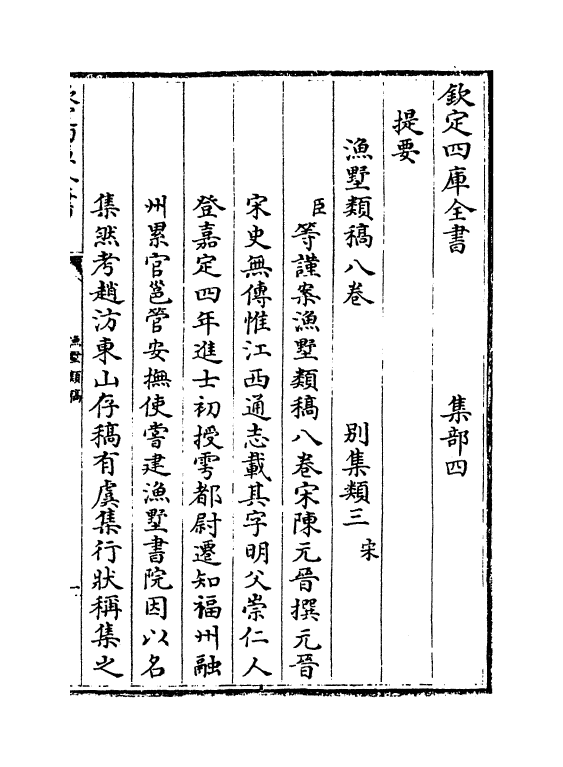 欽定四庫全書 集部四
提要
漁墅類稿八卷 別集類三 宋
臣等謹案漁墅類稿八卷宋陳元晉撰元晉
宋史無傳惟江西通志載其字明父崇仁人
登嘉定四年進士初授雩都尉遷知福州融
州累官邕管安撫使嘗建漁墅書院因以名
集然考趙汸東山存稿有虞集行狀稱集之
漁墅類稿
一